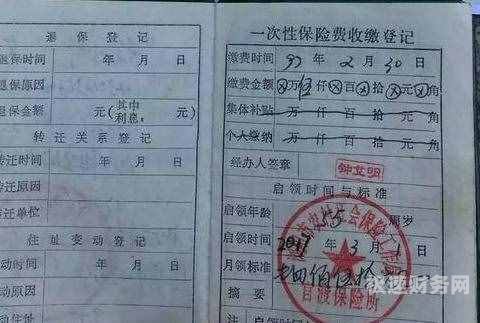 退保登记
退保时间 年 月 日
退保原因
退保金额 元(其中利息: 元)
转迁关系登记
转迁时间 年 月 日
转迁原因
转迁单位
住址变动登记
动时间 年 月 日
一次性保险费收缴登记
缴费时间 97 年 2 月 30 日
缴费金额 ⊗万伍仟⊗百⊗拾⊗元⊗角
集体补贴 万 仟 百 拾 元 角
个人缴纳 万 仟 百 拾 元 角
经办人签章 钟立明
启领时间与标准
启领年龄 55 周岁
启领时间 2017 年 3 月 1 日
月领标准
摘要
保险所
注